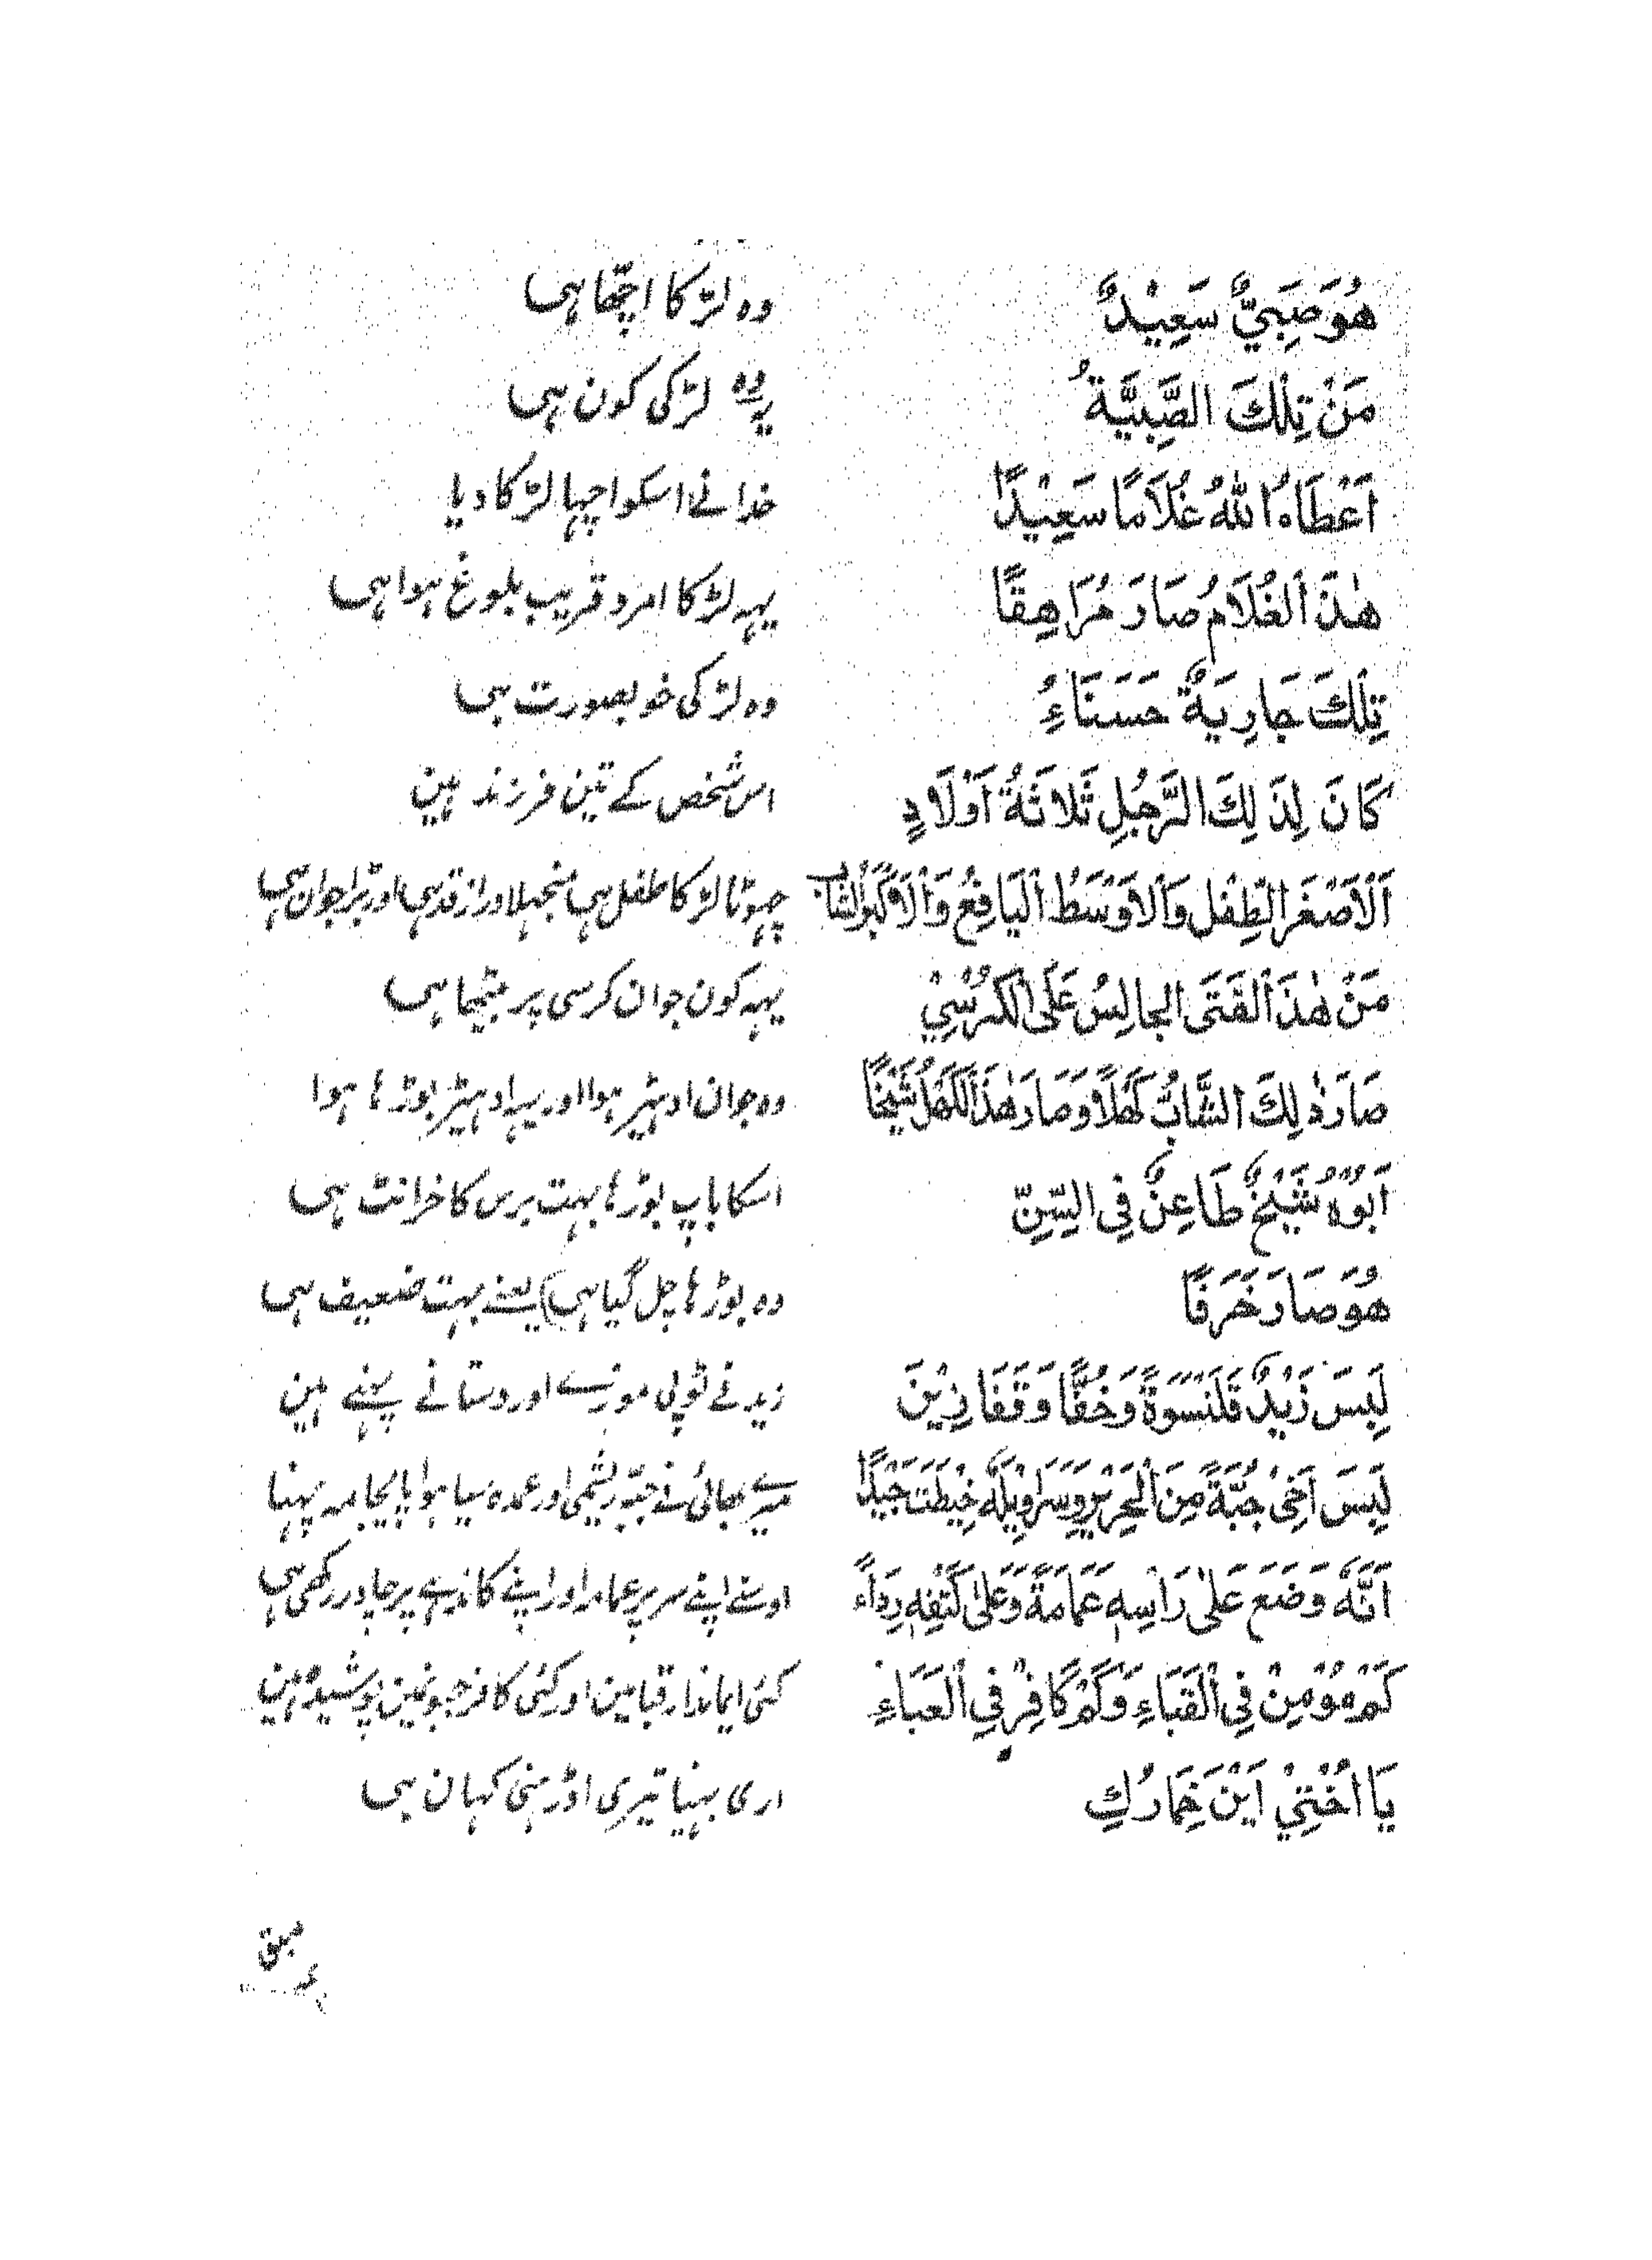 هُوَ صَبِيٌّ سَعِيْدٌ وہ لڑکا اچّھا ہی
مَنْ تِلْكَ الصَّبِيَّةُ یہ وہ لڑکی کون ہی
اَعْطَاهُ اللّٰهُ غُلَامًا سَعِيْدًا خدا نے اسکو اچہا لڑکا دیا
هٰذَ الْغُلَامُ صَارَ مُرَاهِقًا یہہ لڑکا امرد قریب بلوغ ہوا ہی
تِلْكَ جَارِيَةٌ حَسَنَاءُ وہ لڑکی خوبصورت ہی
كَانَ لِذَلِكَ الرَّجُلِ ثَلَاثَةُ اَوْلَادٍ اس شخص کے تین فرزند ہین
اَلْاَصْغَرُ الطِّفْلُ وَالْاَوْسَطُ الْيَافِعُ وَالْاَكْبَرُ الشَّابُّ چہوٹا لڑکا طفل ہی منجہلا دراز قد ہی اور بڑا جوان ہی
مَنْ هٰذَ الْفَتَى الجالِسُ عَلَى الْكُرْسِيْ یہہ کون جوان کرسی پر بیٹھا ہی
صَارَ ذٰلِكَ الشَّابُّ كَهْلًا وَصَارَ هٰذَ الْكَهْلُ شَيْخًا وہ جوان ادہیڑ ہوا اور یہہ ادہیڑ بوڑہا ہوا
اَبُوْهُ شَيْخٌ طَاعِنٌ فِي السِّنِّ اسکا باپ بوڑہا بہت برس کا خرانٹ ہی
هُوَ صَارَ خَرَفًا وہ بوڑہا چل گیا ہی) یعنے بہت ضعیف ہی
لَبِسَ زَيْدٌ قَلَنْسُوَةً وَخُفًّا وَقَفَازِيْنَ زید نے ٹوپی موزے اور دستانے پہنے ہین
لَبِسَ اَخِيْ جُبَّةً مِنَ الْحَرِيْرِ وَسَرَاوِيْلَهُ خِيْطَتْ جَيِّدًا میرے بھائی نے جبّہ ریشمی اور عمدہ سیا ہوا پایجامہ پہنا
اَنَّهُ وَضَعَ عَلٰى رَاْسِهِ عَمَامَةً وَعَلٰى كَتِفِهِ رِدَاءً اوسنے اپنے سر پر عمامہ اور اپنے کاندہے پر چادر رکھی ہی
كَمْ مُوْمِنْ فِى الْقَبَاءِ وَكَمْ كَافِرٍ فِي الْعَبَاءِ کئی ایماندار قبا مین اور کئی کافر جبونمین پوشیدہ ہین
يَا اُخْتِيْ اَيْنَ خِمَارُكِ اری بہنیا تیری اوڑہنی کہان ہی
سبق